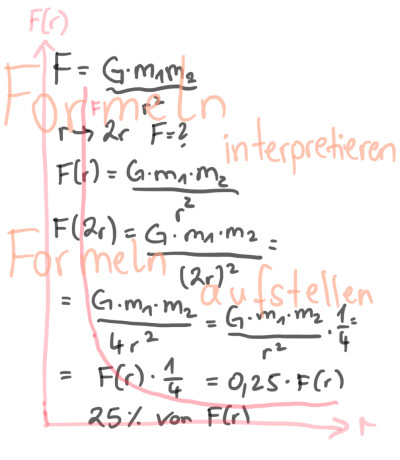 F(r)
F = G·m₁m₂ / r²
Formeln
F
r → 2r F = ?
interpretieren
F(r) = G·m₁·m₂ / r²
F(2r) = G·m₁·m₂ / (2r)² =
Formeln
aufstellen
= G·m₁·m₂ / 4r² = G·m₁·m₂ / r² · 1/4 =
= F(r) · 1/4 = 0,25 · F(r)
25% von F(r)
r